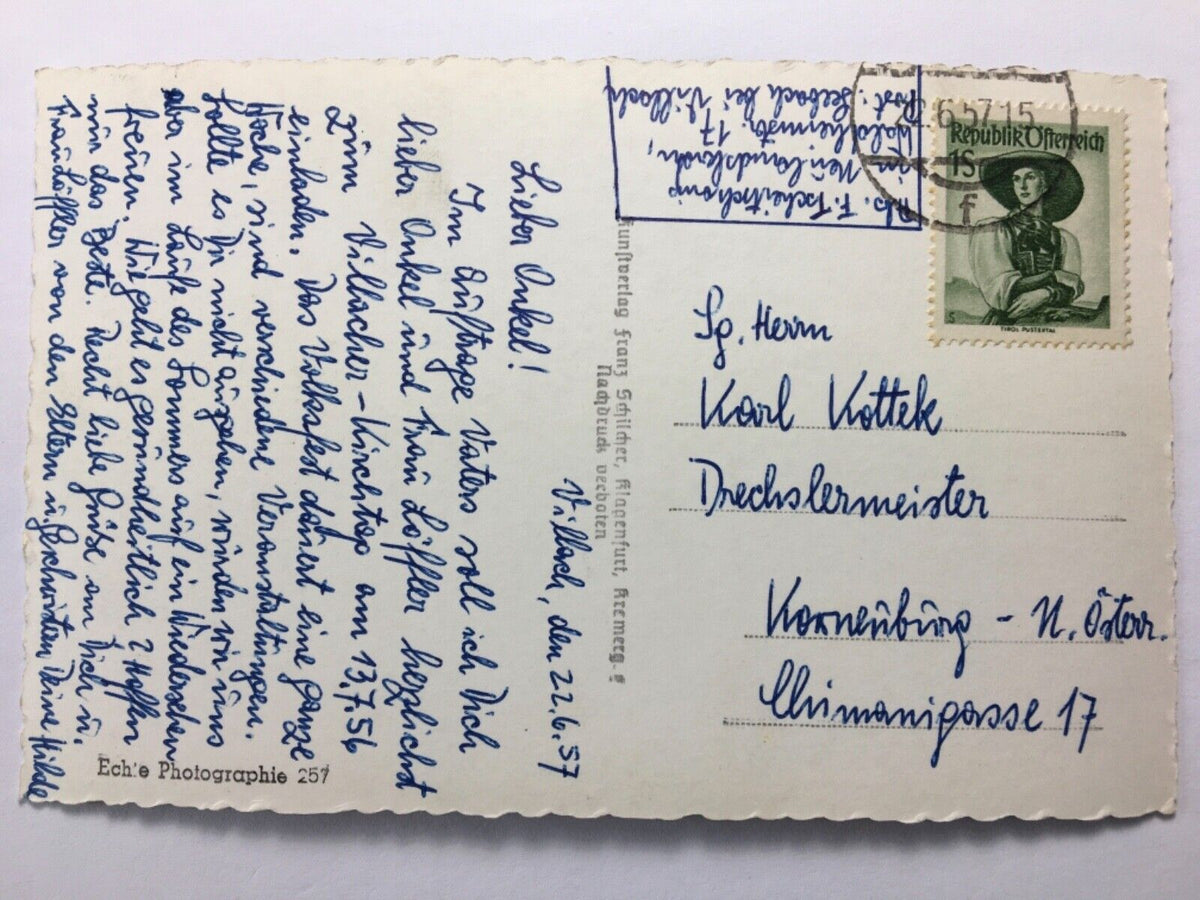 Villach, den 22.6.57
Lieber Onkel!
Im Auftrage Vaters soll ich Dich
lieber Onkel und Frau Löffler herzlichst
zum Villacher-Kirchtag am 13.7.56
einladen. Das Volksfest dauert eine ganze
Woche, sind verschiedne Veranstaltungen.
Sollte es Dir nicht ausgehen, würden wir uns
aber im Laufe des Sommers auf ein Wiedersehen
freuen. Wie geht es gesundheitlich? Hoffen
nur das Beste. Recht liebe Grüße an Dich u.
Frau Löffler von den Eltern u. Geschwistern Deine Hilde
Echte Photographie 257
Kunstverlag Franz Schilcher, Klagenfurt, Kremerg.
Nachdruck verboten
Abs. F. Tscheitschonig
in Neulandskron,
Waldheimstr. 17
Post: Seebach bei Villach
22.6.57-15
f
Republik Österreich
1S
S
TIROL PUSTERTAL
Sg. Herrn
Karl Kottek
Drechslermeister
Korneuburg - N. Österr.
Chimanigasse 17